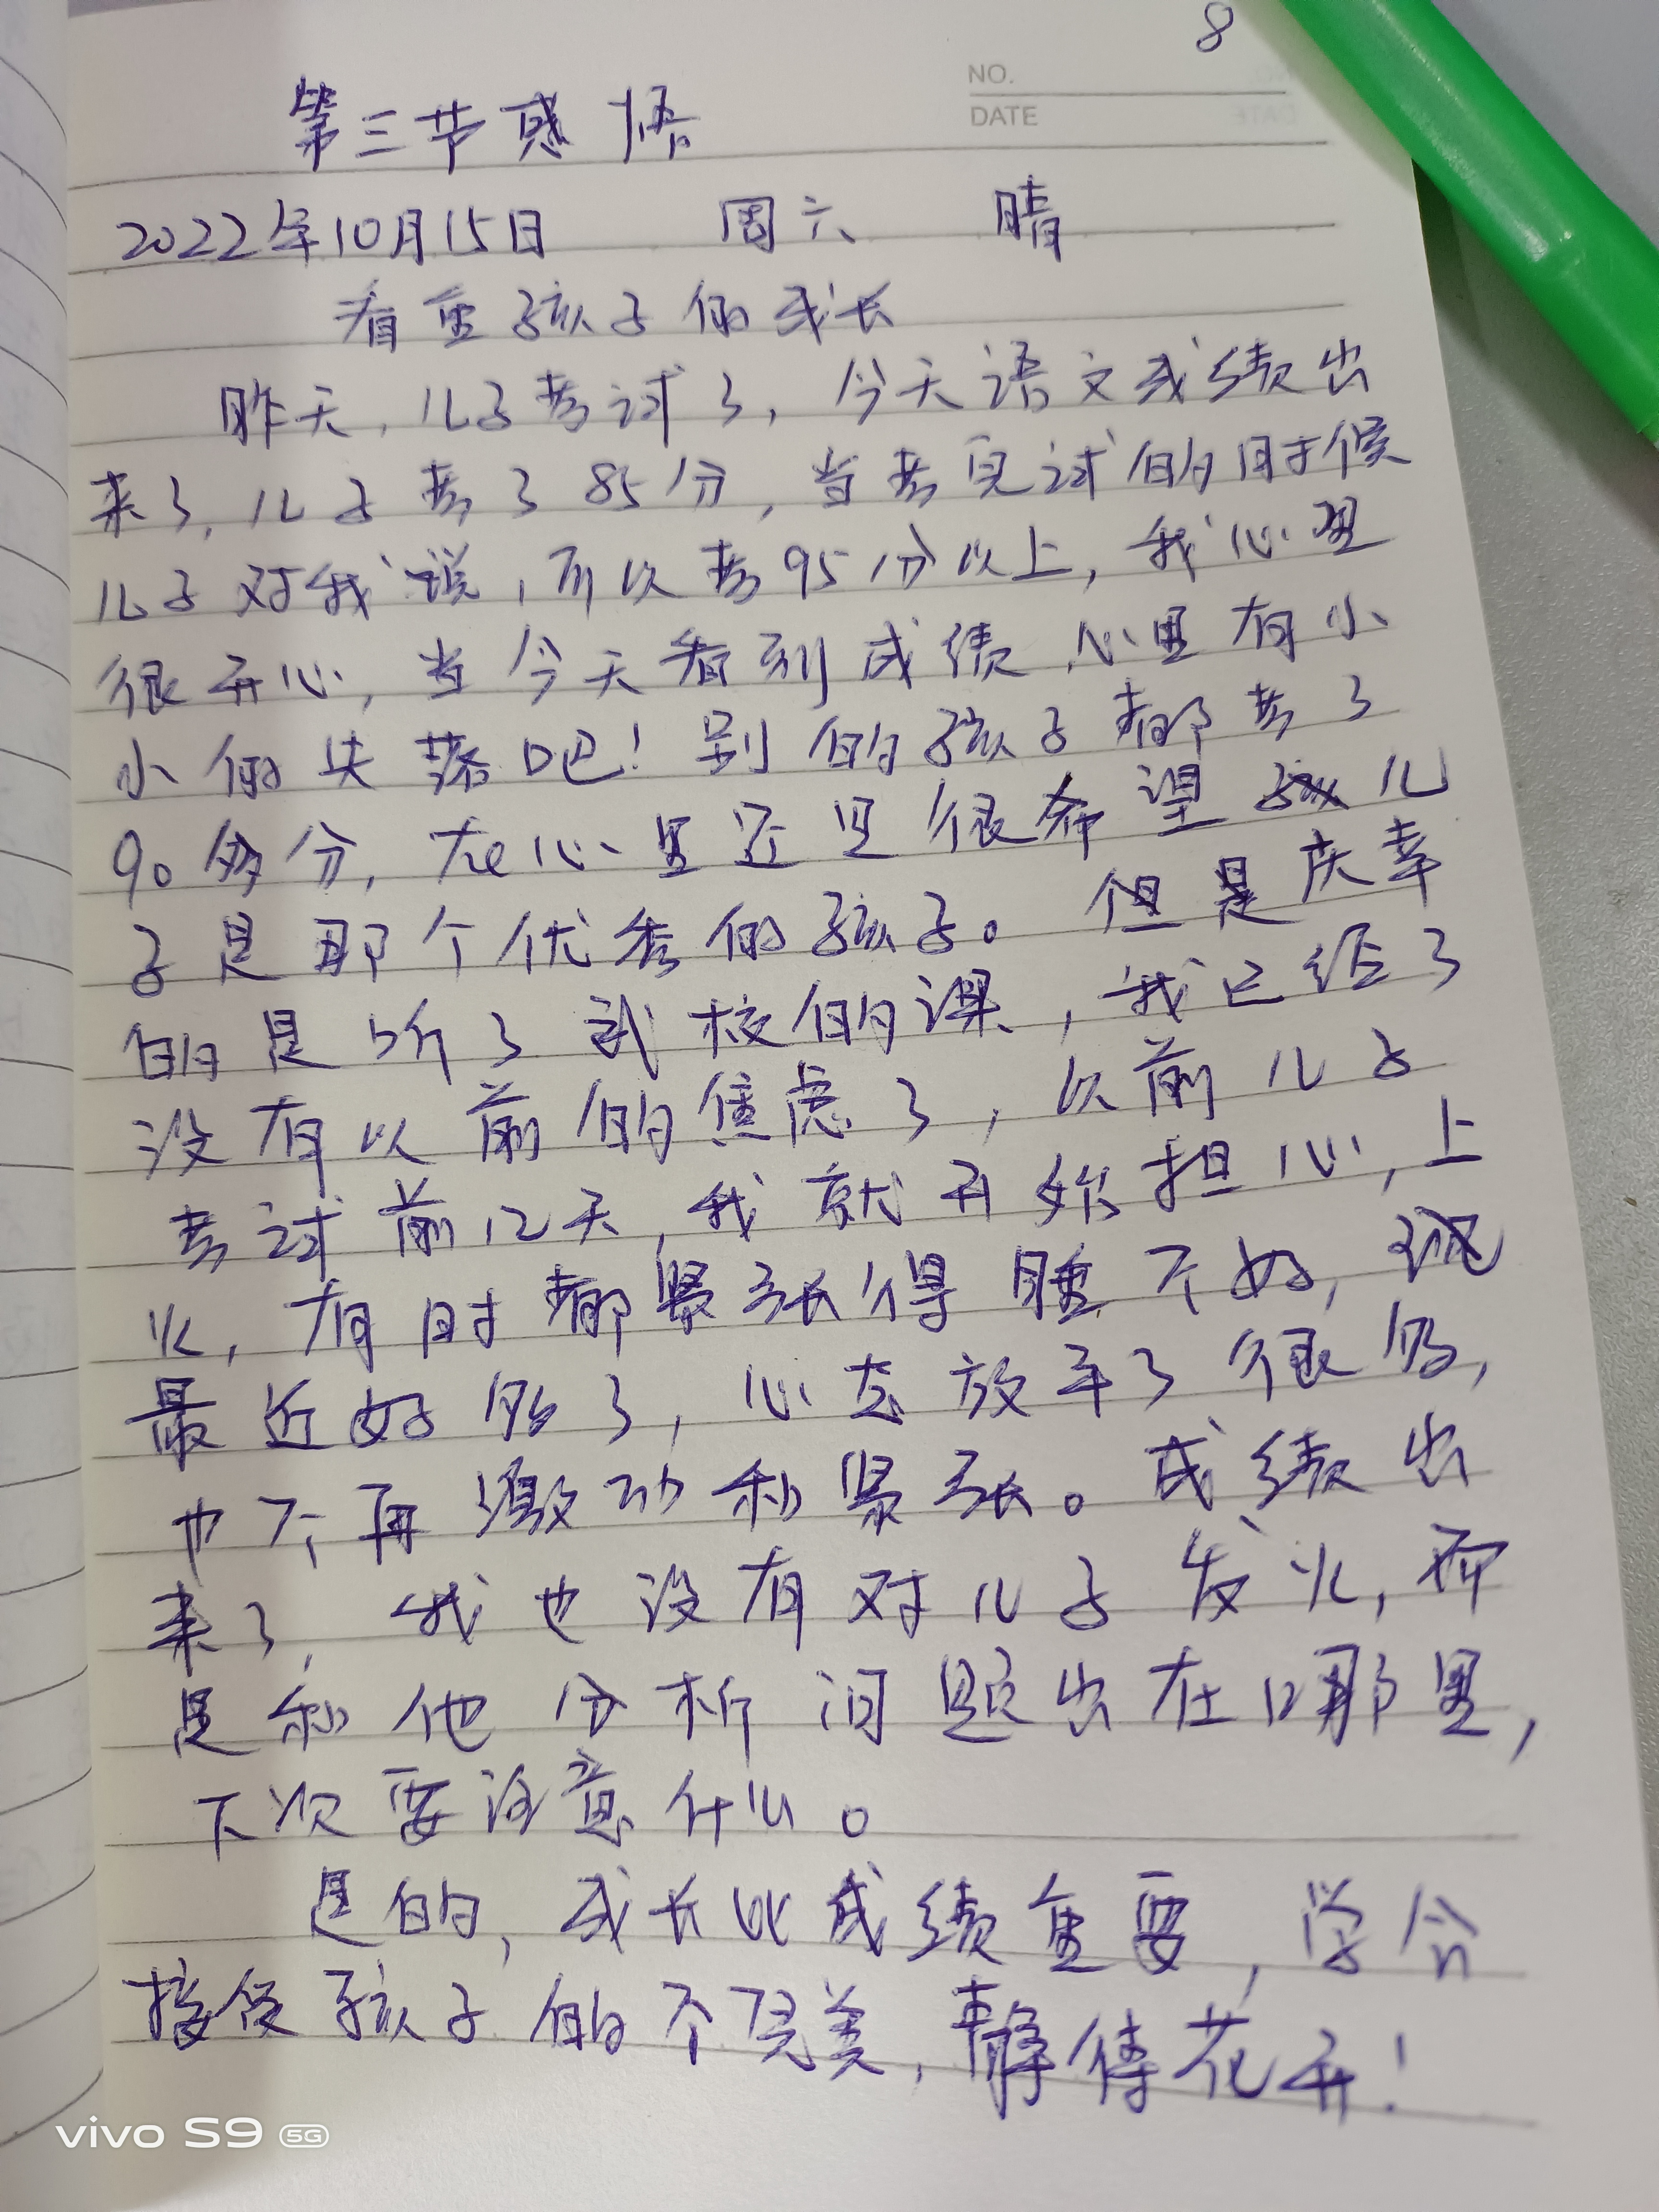 8
NO.
DATE
第三节感悟
2022年10月15日 周六 晴
看重孩子的成长
昨天,儿子考试了,今天语文成绩出
来了,儿子考了85分,当考完试的时候
儿子对我说,可以考95分以上,我心里
很开心,当今天看到成绩,心里有小
小的失落吧!别的孩子都考了
90多分,在心里还是很希望儿
子是那个优秀的孩子。但是庆幸
的是听了武校的课,我已经了
没有以前的焦虑了,以前儿子
考试前12天,我就开始担心,上
火,有时都紧张得睡不好,
最近好多了,心态放平了很多,
也不再激动和紧张。成绩出
来了,我也没有对儿子发火,而
是和他分析问题出在哪里,
下次要注意什么。
是的,成长比成绩重要,学会
接受孩子的不完美,静待花开!
vivo S9 5G